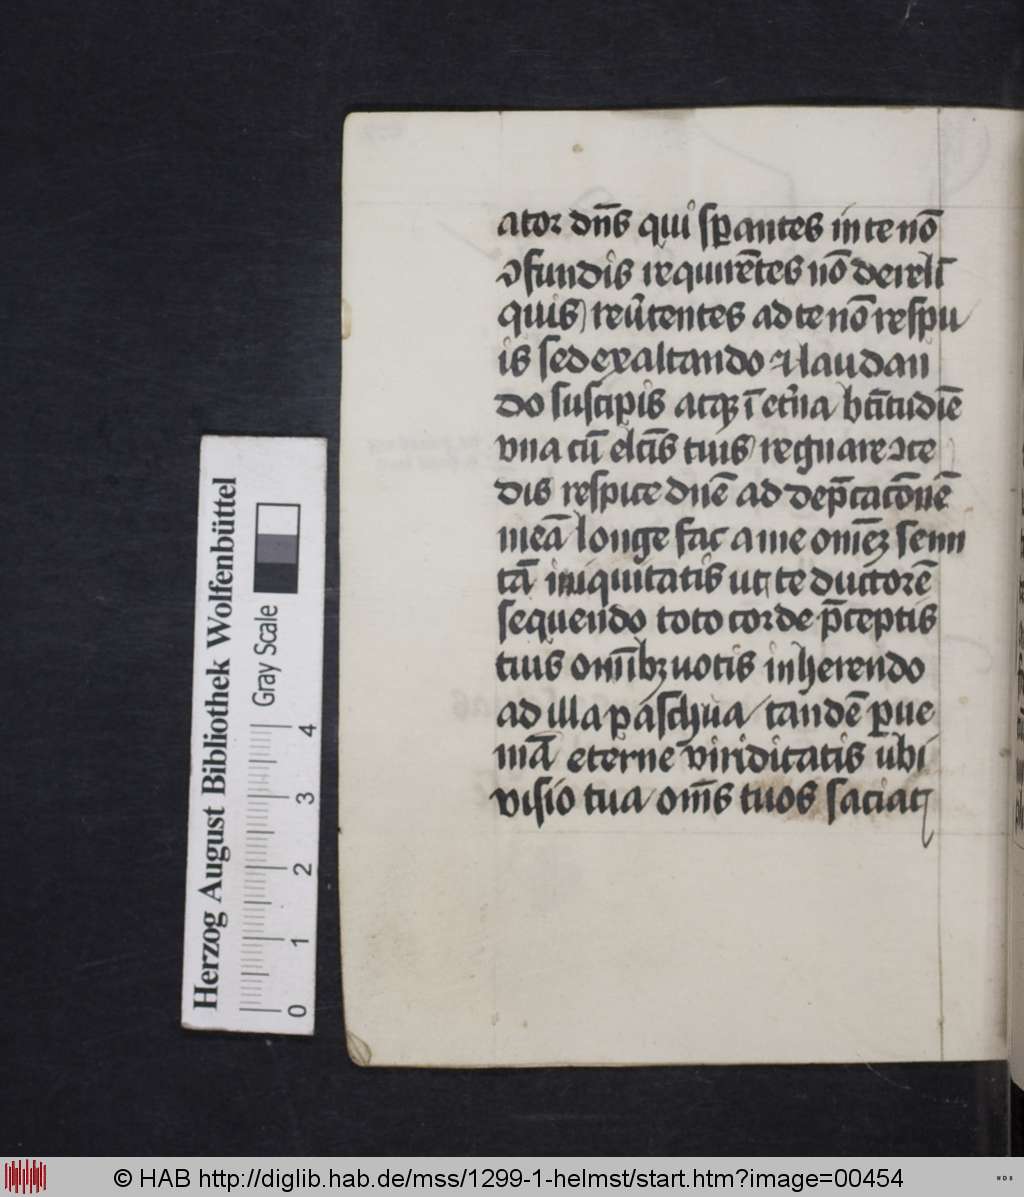 ator dn̄s qui sꝑantes in te nō
ꝯfundis requirētes nō dereli
quis reu͛tentes ad te nō respu
is sed exaltando ⁊ laudan
do suscipis atqꝫ ī et͛na btītudīe
vna cū elcīs tuis regnare ꝯce
dis respice dn̄e ad dep̄catōnē
meā longe fac a me omēꝫ semi
tā iniquitatis ut te ductorē
sequendo toto corde p̄ceptis
tuis omībꝫ uotis inherendo
ad illa pascħua tandē ꝑue
niā eterne viriditatis ubi
visio tua om̄s tuos saciat
Herzog August Bibliothek Wolfenbüttel
Gray Scale
0 1 2 3 4
© HAB http://diglib.hab.de/mss/1299-1-helmst/start.htm?image=00454